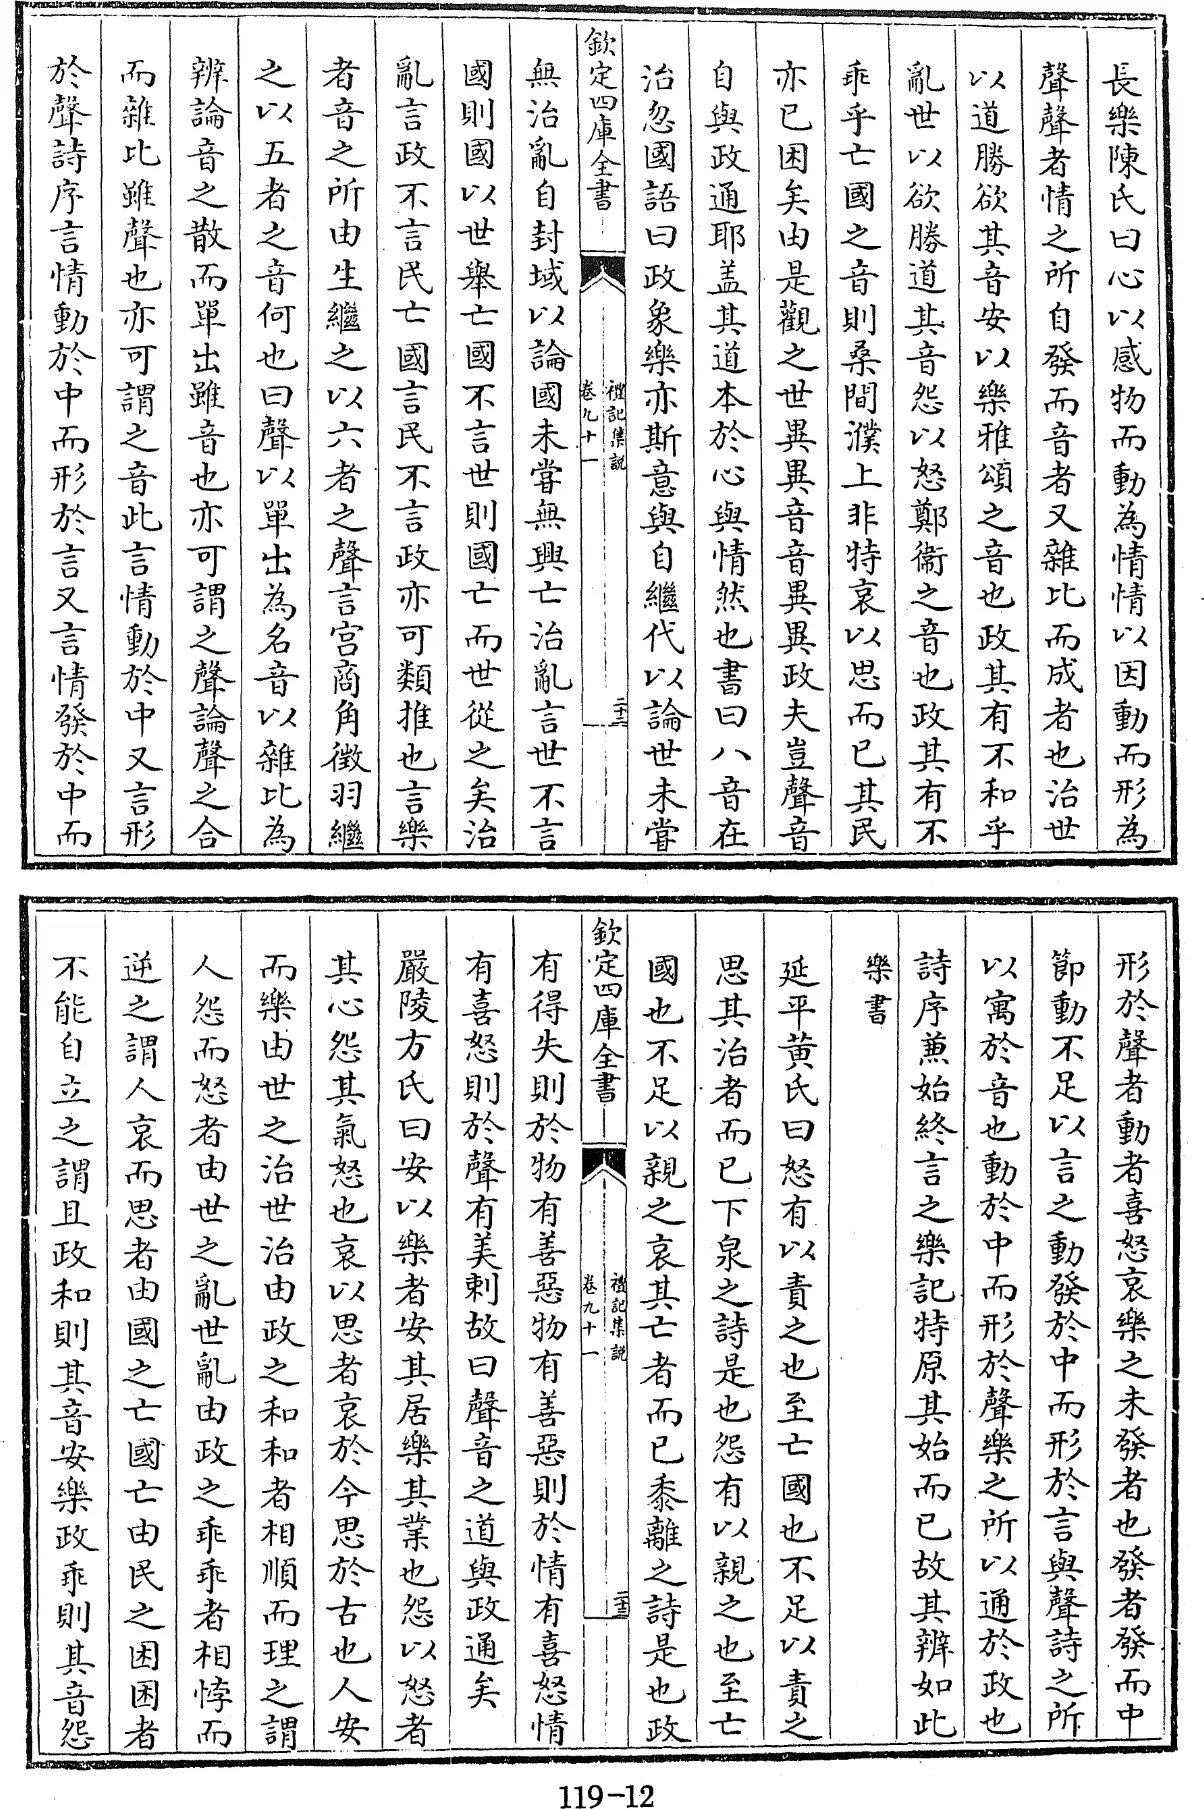 長樂陳氏曰心以感物而動為情情以因動而形為
聲聲者情之所自發而音者又雜比而成者也治世
以道勝欲其音安以樂雅頌之音也政其有不和乎
亂世以欲勝道其音怨以怒鄭衞之音也政其有不
乖乎亡國之音則桑間濮上非特哀以思而已其民
亦已困矣由是觀之世異異音音異異政夫豈聲音
自與政通耶盖其道本於心與情然也書曰八音在
治忽國語曰政象樂亦斯意與自繼代以論世未嘗
欽定四庫全書
禮記集說
卷九十一
二十二
無治亂自封域以論國未嘗無興亡治亂言世不言
國則國以世舉亡國不言世則國亡而世從之矣治
亂言政不言民亡國言民不言政亦可類推也言樂
者音之所由生繼之以六者之聲言宫商角徵羽繼
之以五者之音何也曰聲以單出為名音以雜比為
辨論音之散而單出雖音也亦可謂之聲論聲之合
而雜比雖聲也亦可謂之音此言情動於中又言形
於聲詩序言情動於中而形於言又言情發於中而
形於聲者動者喜怒哀樂之未發者也發者發而中
節動不足以言之動發於中而形於言與聲詩之所
以寓於音也動於中而形於聲樂之所以通於政也
詩序兼始終言之樂記特原其始而已故其辨如此
樂書
延平黄氏曰怒有以責之也至亡國也不足以責之
思其治者而已下泉之詩是也怨有以親之也至亡
國也不足以親之哀其亡者而已黍離之詩是也政
欽定四庫全書
禮記集說
卷九十一
二十三
有得失則於物有善惡物有善惡則於情有喜怒情
有喜怒則於聲有美刺故曰聲音之道與政通矣
嚴陵方氏曰安以樂者安其居樂其業也怨以怒者
其心怨其氣怒也哀以思者哀於今思於古也人安
而樂由世之治世治由政之和和者相順而理之謂
人怨而怒者由世之亂世亂由政之乖乖者相悖而
逆之謂人哀而思者由國之亡國亡由民之困困者
不能自立之謂且政和則其音安樂政乖則其音怨
119-12